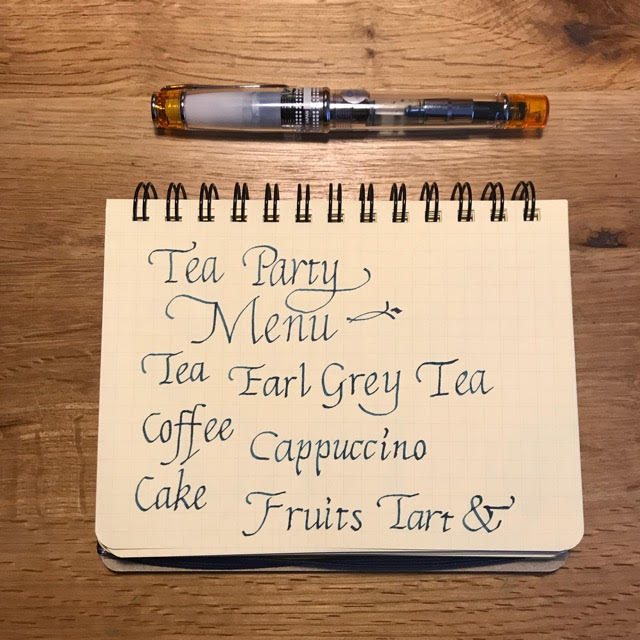 Tea Party
Menu
Tea Earl Grey Tea
Coffee Cappuccino
Cake Fruits Tart &